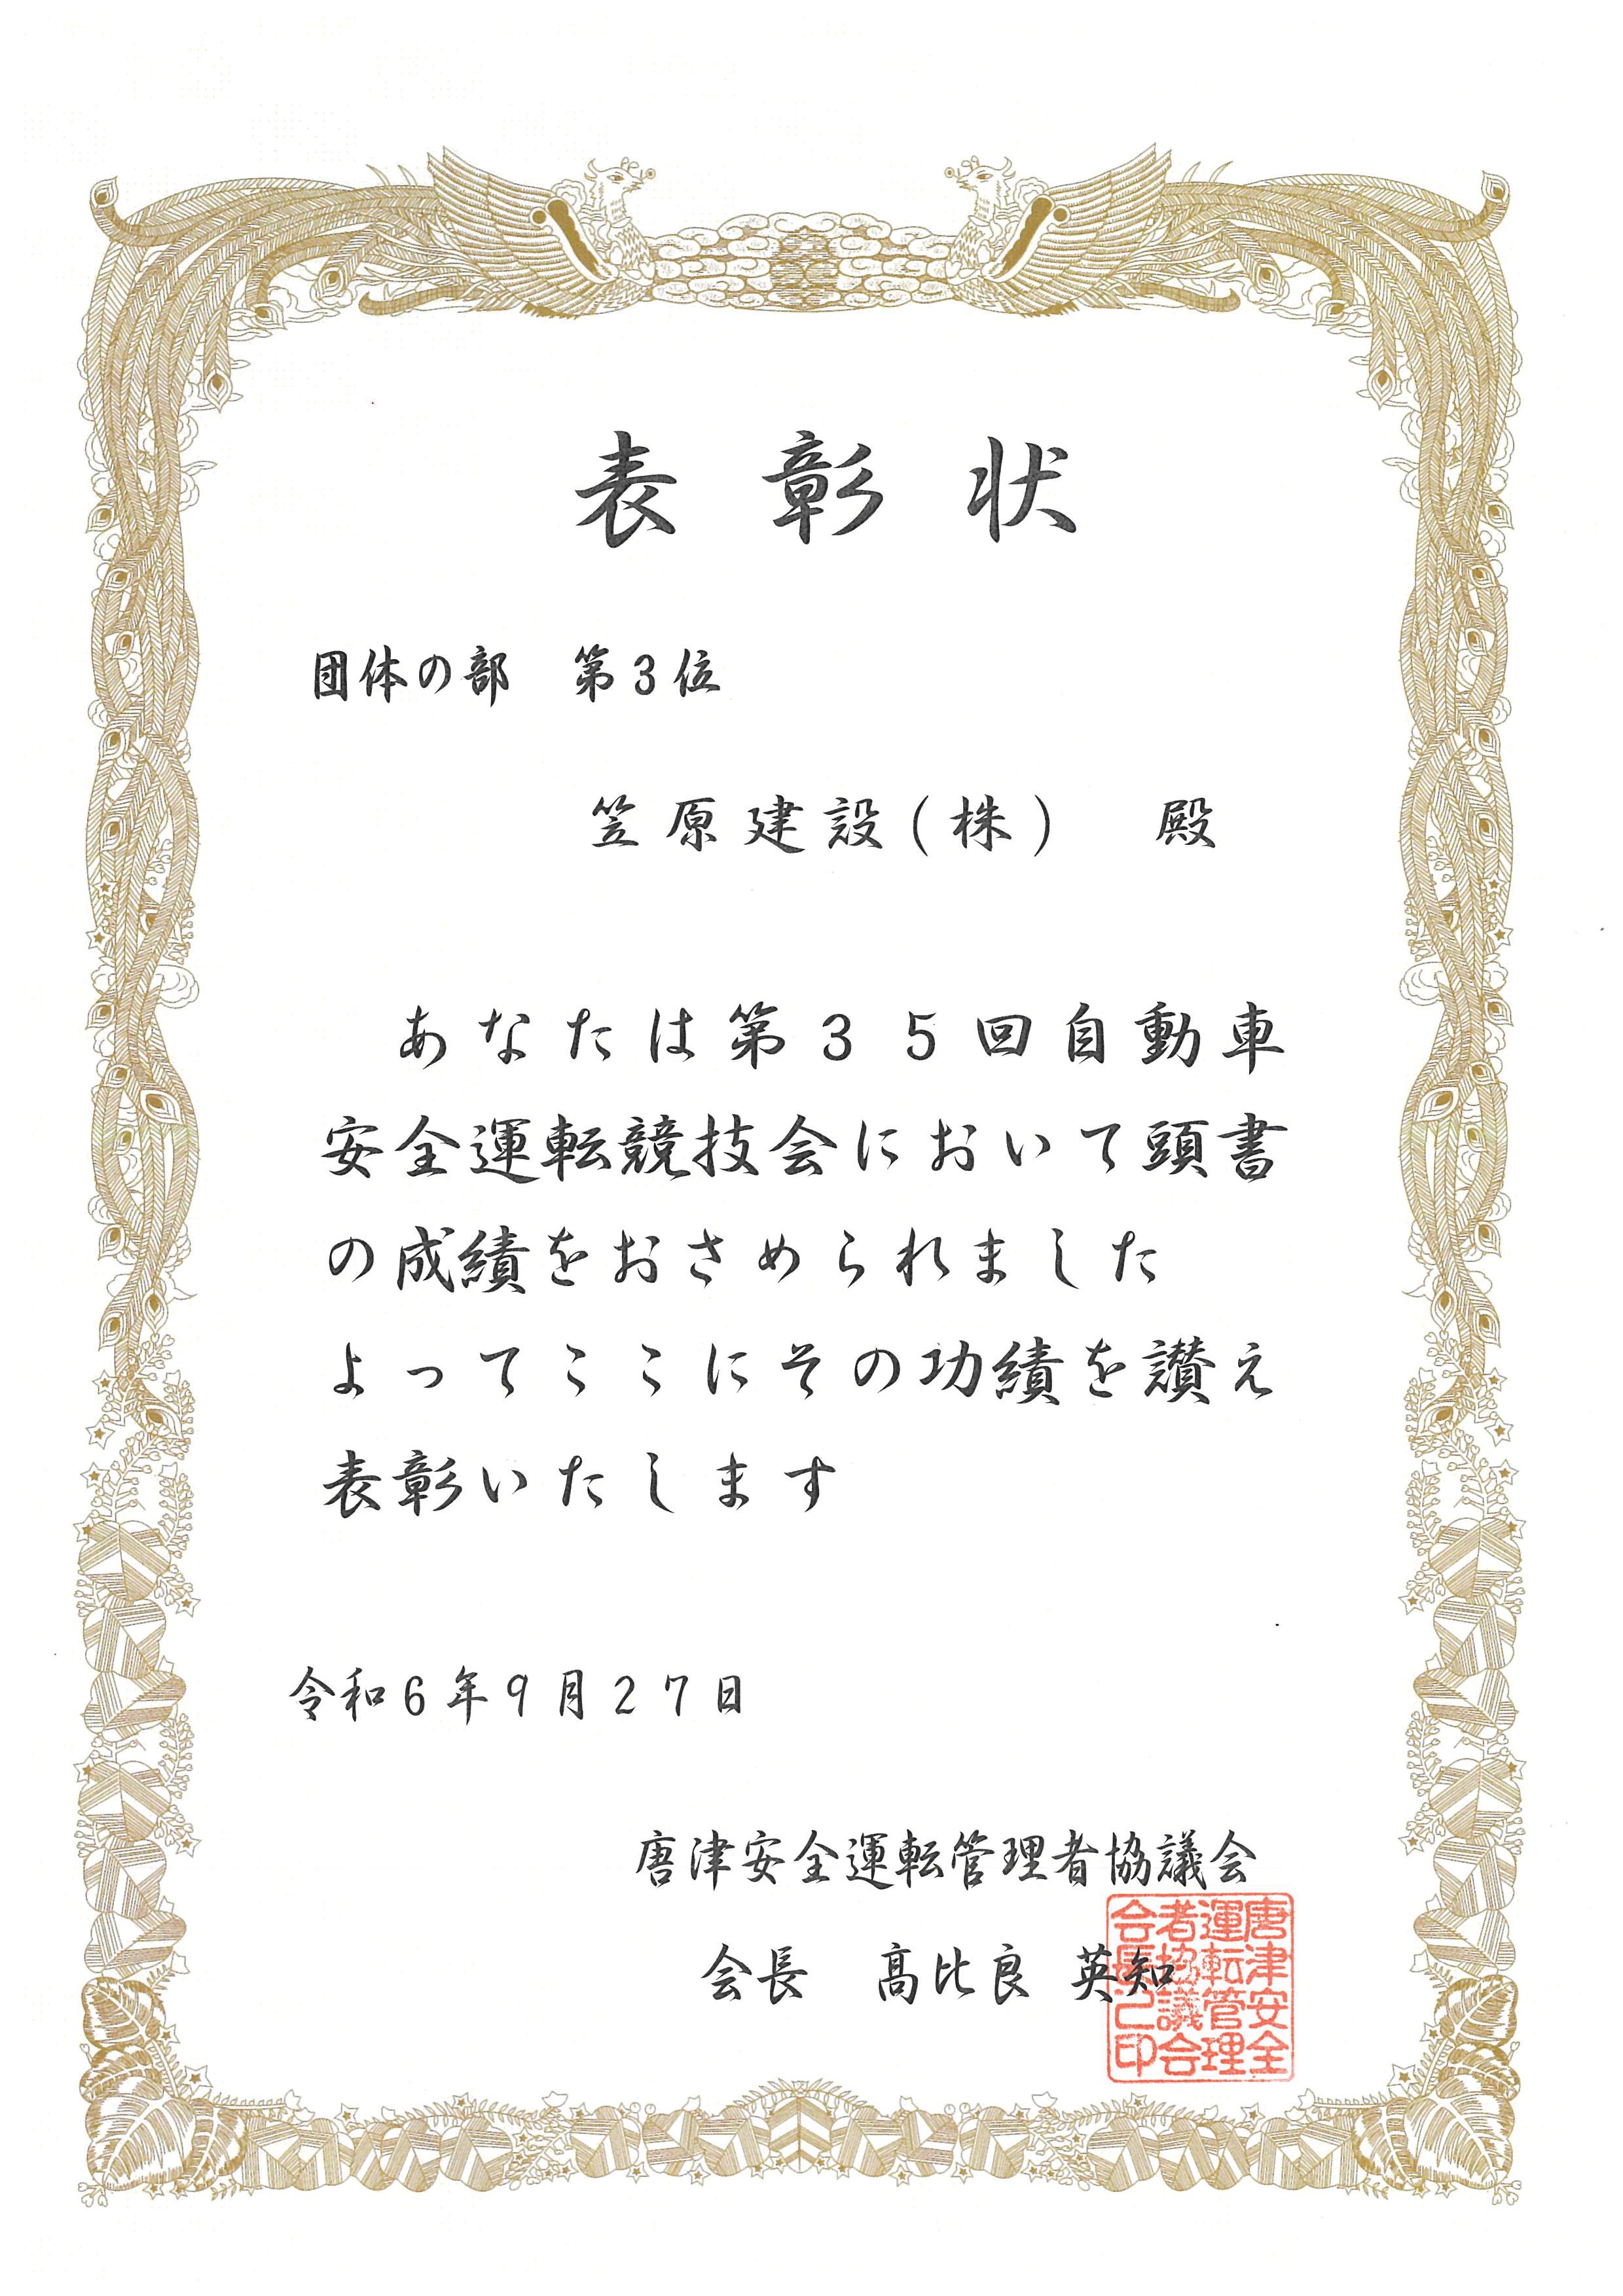 表彰状
団体の部　第3位
笠原建設(株)　殿
あなたは第35回自動車
安全運転競技会において頭書
の成績をおさめられました
よってここにその功績を讃え
表彰いたします
令和6年9月27日
唐津安全運転管理者協議会
会長　髙比良 英知
唐津安全
運転管理
者協議会
会長之印